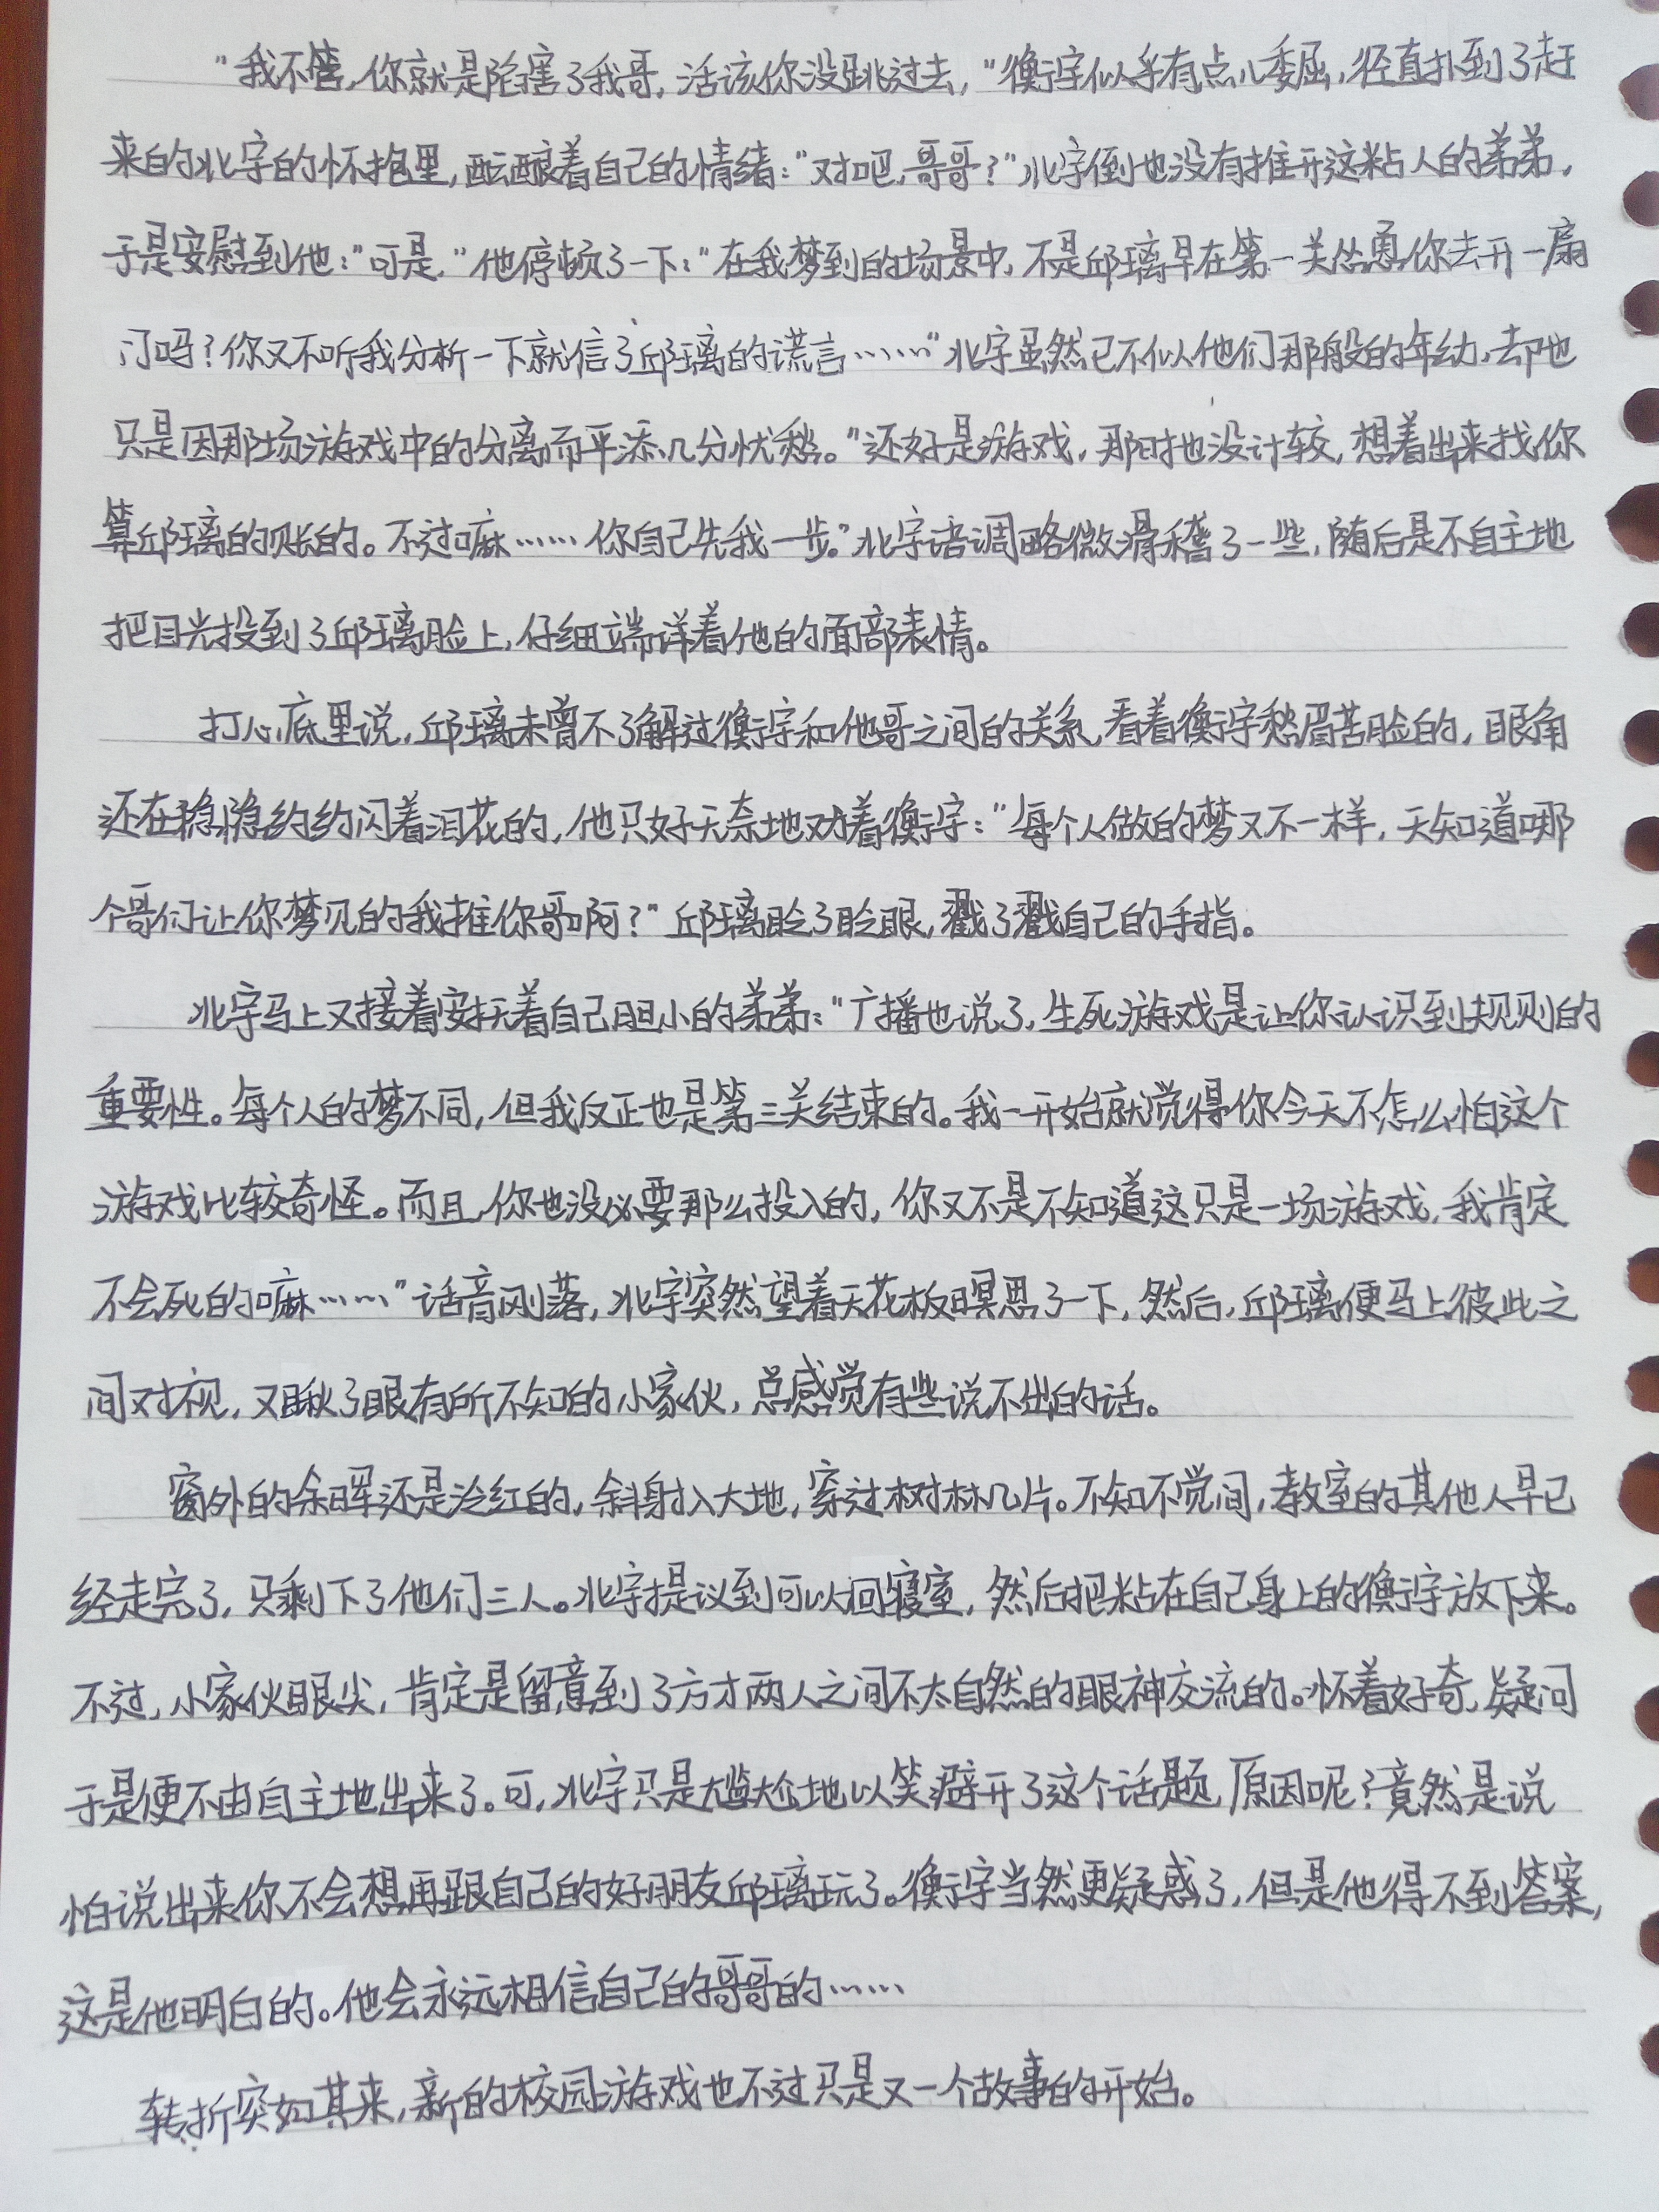 “我不管，你就是陷害了我哥，活该你没跳过去，”衡宇似乎有点儿委屈，径直扑到了赶
来的北宇的怀抱里，酝酿着自己的情绪：“对吧，哥哥？”北宇倒也没有推开这粘人的弟弟，
于是安慰到他：“可是，”他停顿了一下：“在我梦到的场景中，不是邱璃早在第一关怂恿你去开一扇
门吗？你又不听我分析一下就信了邱璃的谎言……”北宇虽然已不似他们那般的年幼，却也
只是因那场游戏中的分离而平添几分忧愁。“还好是游戏，那时也没计较，想着出来找你
算邱璃的账的。不过嘛……你自己先我一步。”北宇语调略微滑稽了一些，随后是不自主地
把目光投到了邱璃脸上，仔细端详着他的面部表情。
打心底里说，邱璃未曾不了解过衡宇和他哥之间的关系，看着衡宇愁眉苦脸的，眼角
还在隐隐约约闪着泪花的，他只好无奈地劝着衡宇：“每个人做的梦又不一样，天知道哪
个哥们让你梦见的我推你哥啊？”邱璃眨了眨眼，戳了戳自己的手指。
北宇马上又接着安抚着自己胆小的弟弟：“广播也说了，生死游戏是让你认识到规则的
重要性。每个人的梦不同，但我反正也是第三关结束的。我一开始就觉得你今天不怎么怕这个
游戏比较奇怪。而且，你也没必要那么投入的，你又不是不知道这只是一场游戏，我肯定
不会死的嘛……”话音刚落，北宇突然望着天花板瞑思了一下，然后，邱璃便马上彼此之
间对视，又瞅了眼有所不知的小家伙，总感觉有些说不出的话。
窗外的余晖还是泠红的，斜射入大地，穿过树林几片。不知不觉间，教室的其他人早已
经走完了，只剩下了他们三人。北宇提议到可以回寝室，然后把粘在自己身上的衡宇放下来。
不过，小家伙眼尖，肯定是留意到了方才两人之间不太自然的眼神交流的。怀着好奇，疑问
于是便不由自主地出来了。可，北宇只是尴尬地以笑避开了这个话题，原因呢？竟然是说
怕说出来你不会想再跟自己的好朋友邱璃玩了。衡宇当然更疑惑了，但是他得不到答案，
这是他明白的。他会永远相信自己的哥哥的……
转折突如其来，新的校园游戏也不过只是又一个故事的开始。